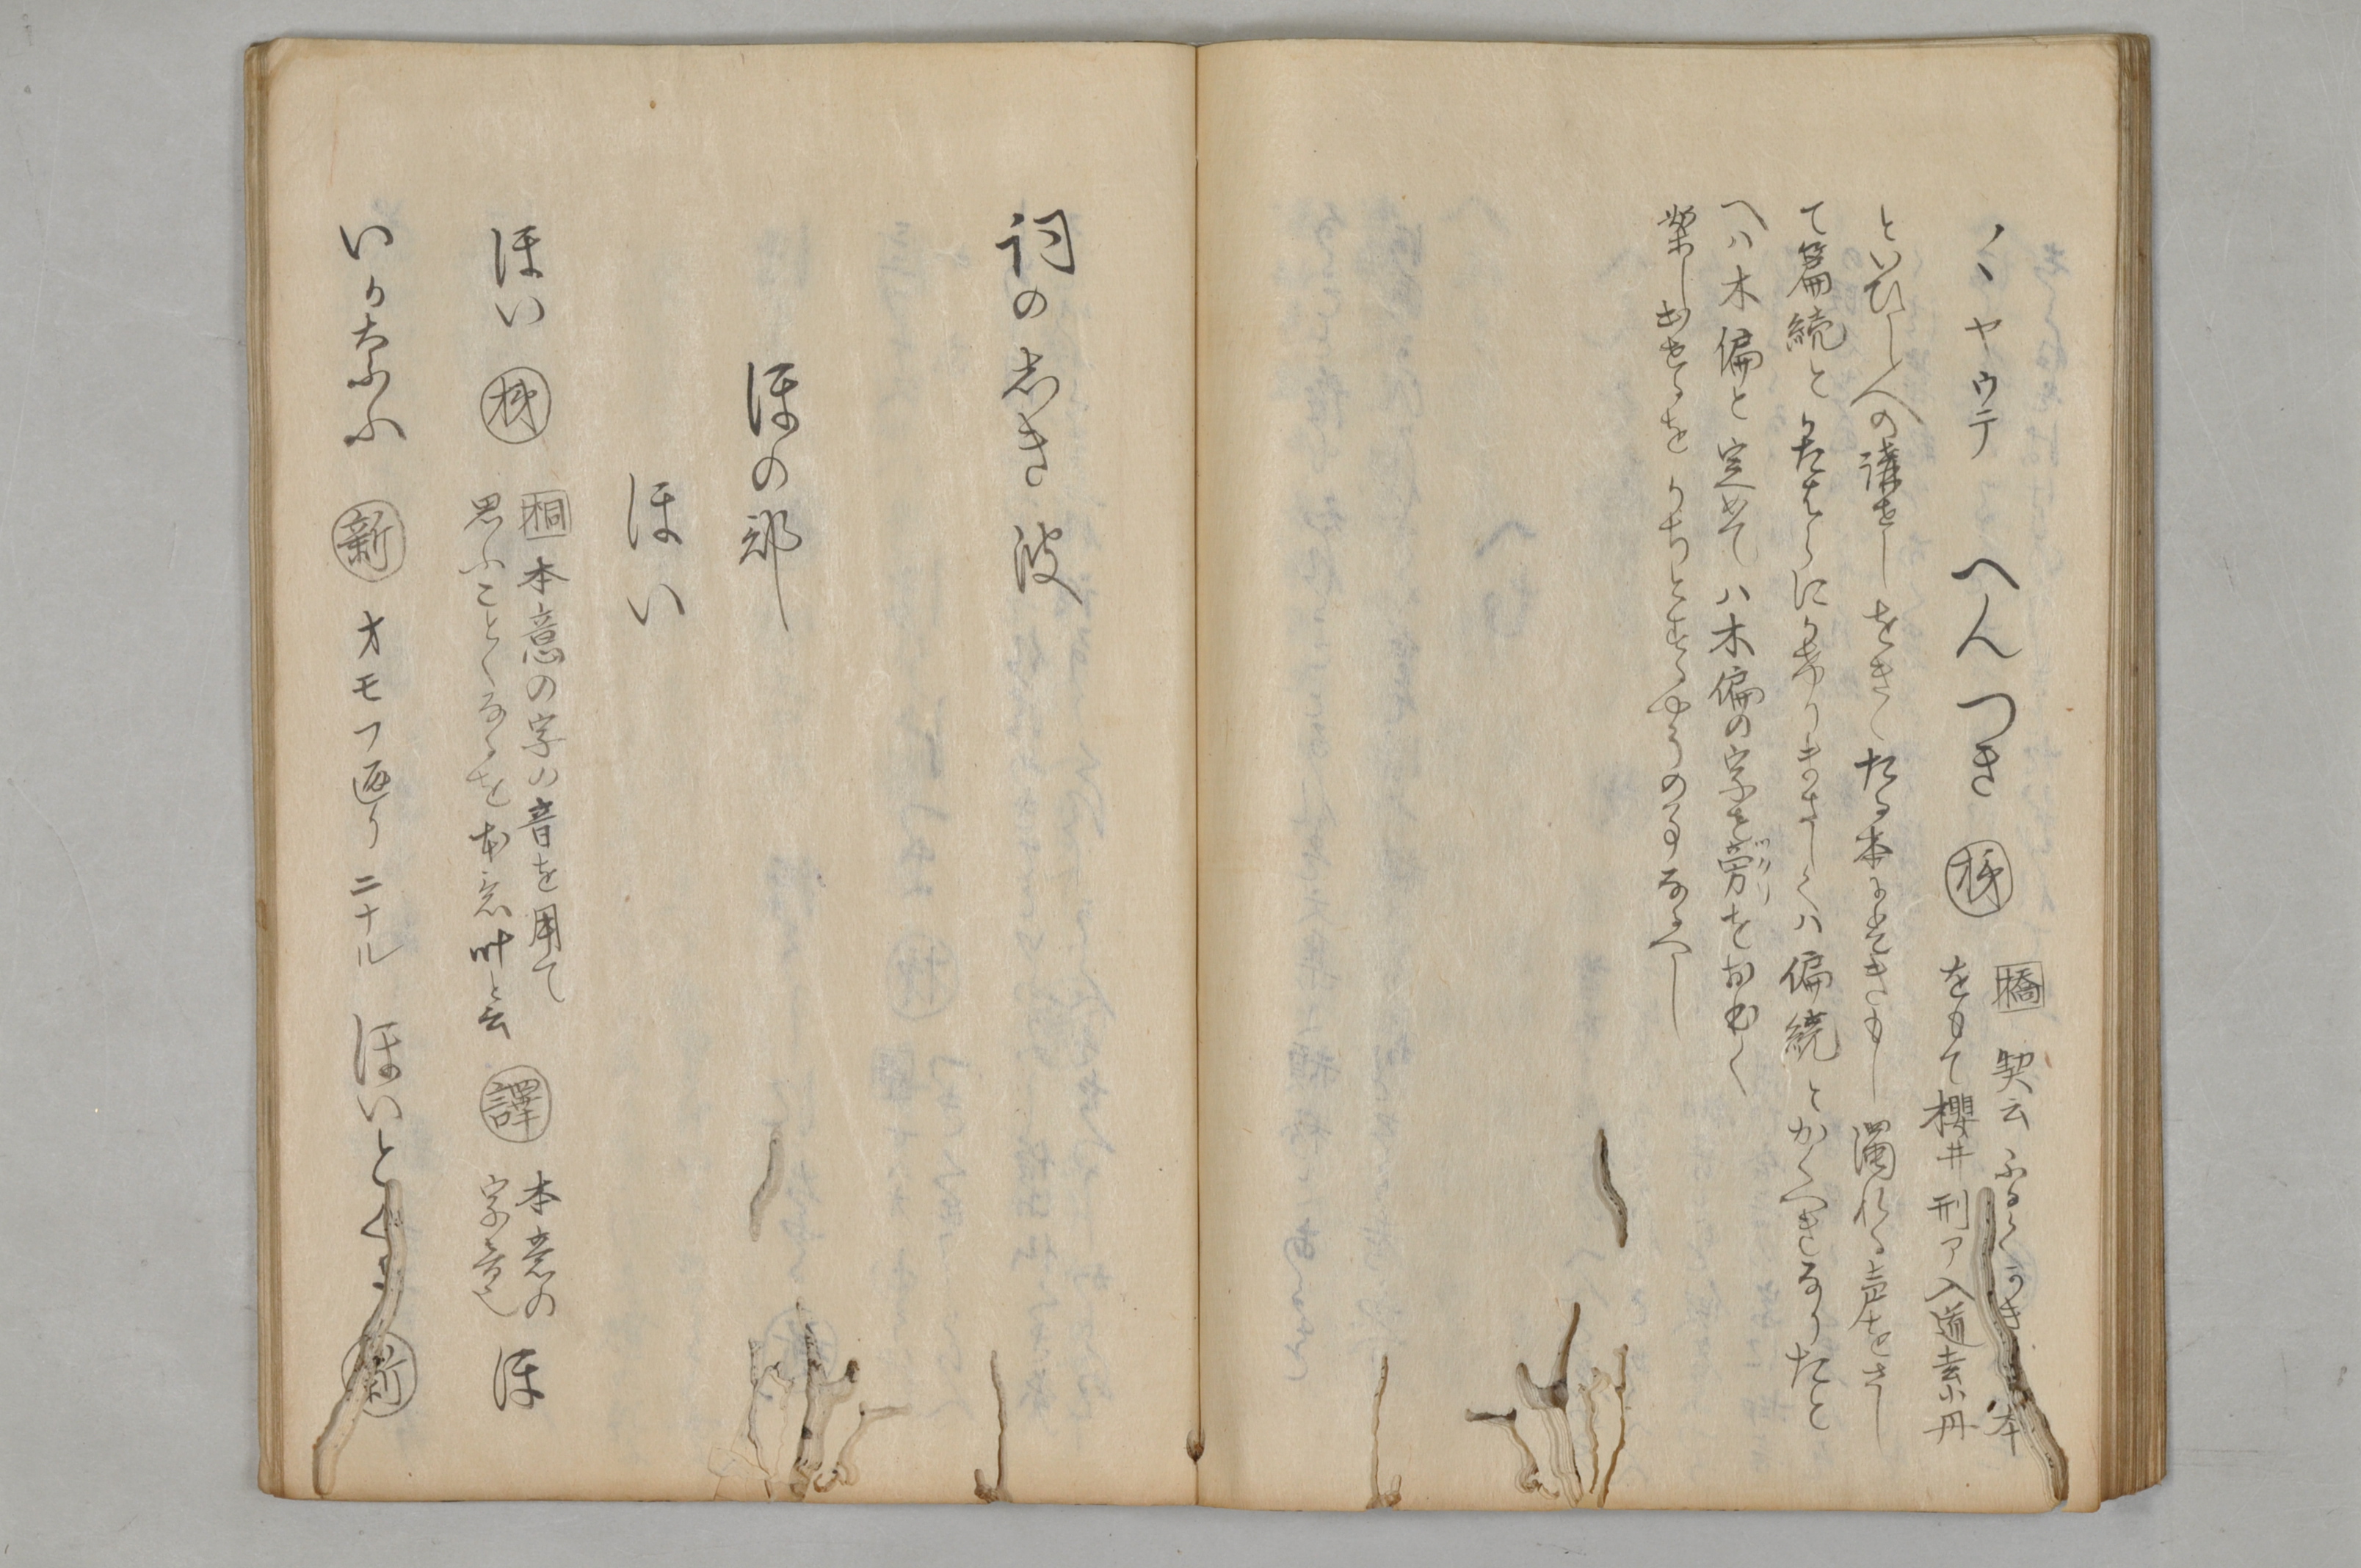 ヽヤウテ へんつき
橋 契云 ふるくかき 本
をもて櫻井刑ア入道素丹
といひし人の講せしをきくたる本にはきもし濁れる声をさし
て篇続とかたはらにかけりまさしくハ偏続とかくへきなりたと
へハ木偏と定めてハ木偏の字を旁ツクリをおほく
案し出せるをかちとするやうの事なるへし
詞の志き波
ほの部
ほい
ほい 桐 本意の字の音を用て
思ふことくなるを本意叶と云
譯 本意の
字音也
ほ
いかなふ 新 オモフ通り ニナル ほいとくる 新